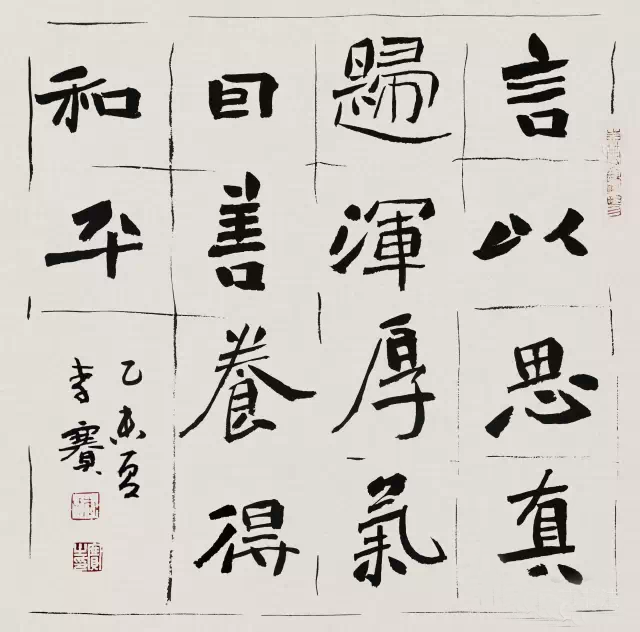 言以思真
歸渾厚氣
囙善養得
和平
乙未夏
李賽